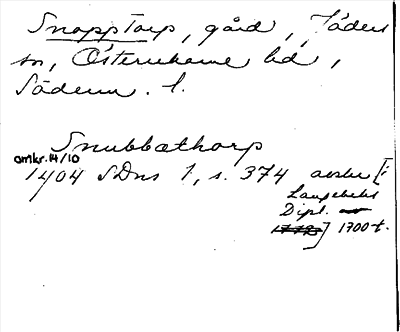 Snopptorp, gård, Jäders
sn, Österrekarne hd,
Söderm. l.
Snubbæthorp
omkr. 14/10
1404 SDns 1, s. 374 avskr [i
Langebeks
Dipl.
1772] 1700-t.